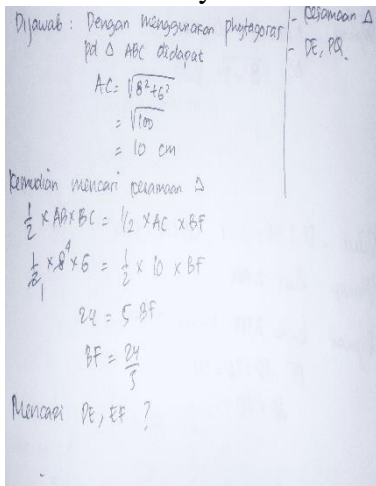 Dijawab : Dengan menggunakan phytagoras
pd Δ ABC didapat
AC = √8²+6²
= √100
= 10 cm
Kemudian mencari persamaan Δ
1/2 × AB × BC = 1/2 × AC × BF
1/2 × 8 4 × 6 = 1/2 × 10 × BF
1
24 = 5 BF
BF = 24/5
Mencari DE, EF ?
- persamaan Δ
- DE, PQ.